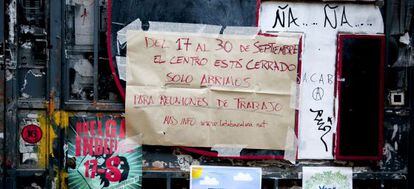 ÑA ... ÑA..
DEL 17 AL 30 DE SEPTIEMBRE
EL CENTRO ESTÁ CERRADO
SOLO ABRIMOS
PARA REUNIONES DE TRABAJO
MAS INFO: www.latabacalera.net
HUELGA
17-S